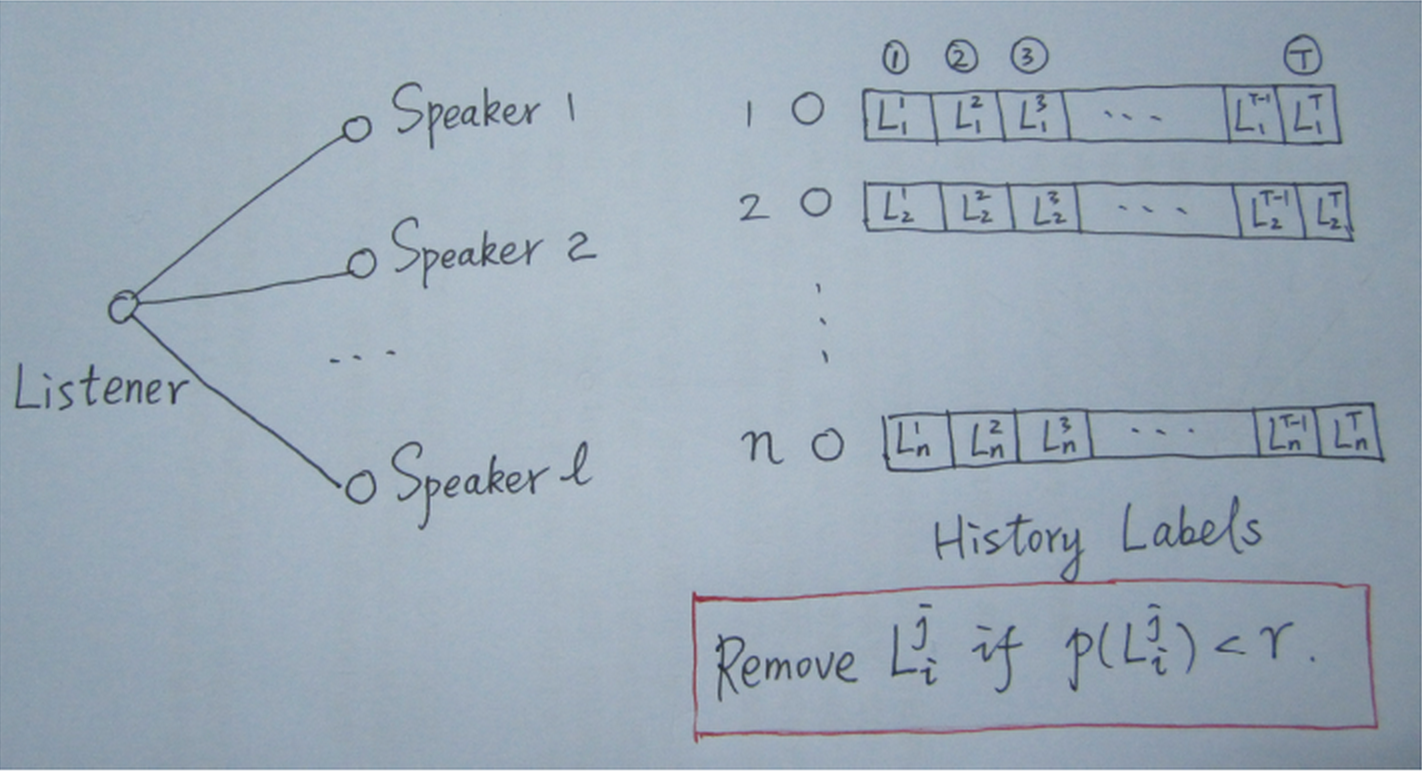 Speaker 1
Speaker 2
...
Listener
Speaker l
① ② ③ Ⓣ
1 L₁¹ L₁² L₁³ ... L₁ᵀ⁻¹ L₁ᵀ
2 L₂¹ L₂² L₂³ ... L₂ᵀ⁻¹ L₂ᵀ
n Lₙ¹ Lₙ² Lₙ³ ... Lₙᵀ⁻¹ Lₙᵀ
History Labels
Remove Lᵢʲ if p(Lᵢʲ) < r.